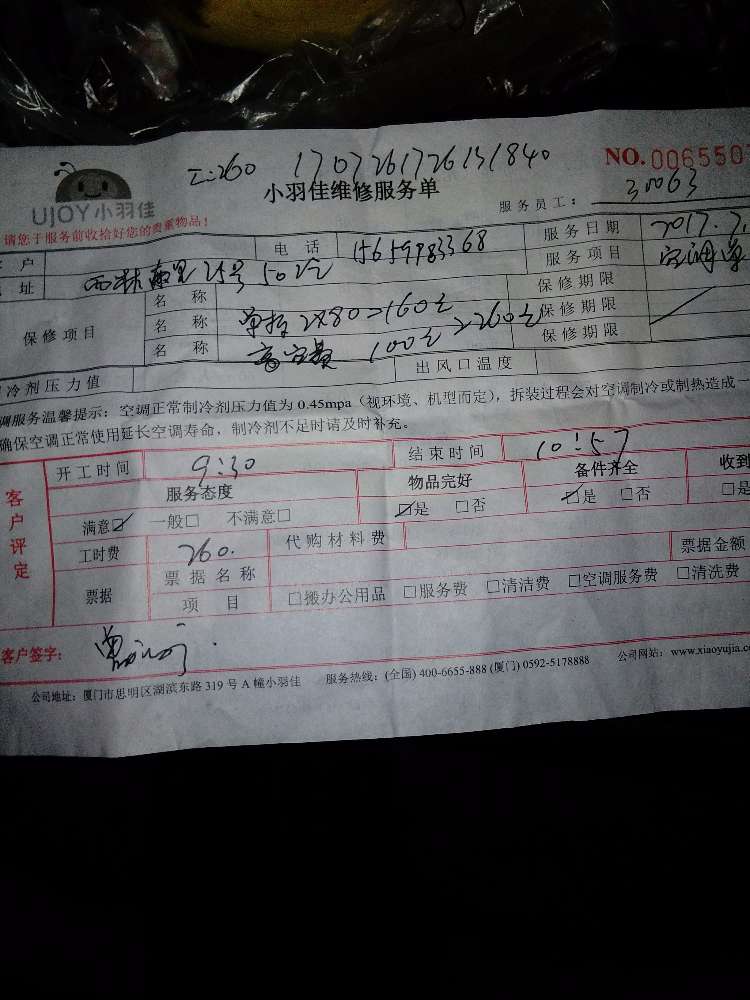 I:260 1707261726131840
NO. 0065503
UJOY小羽佳
小羽佳维修服务单
服务员工: 30063
请您于服务前收拾好您的贵重物品!
户 电 话 15659783368 服务日期 2017.7.
址 西林 25号 502 服务项目 空调
保修项目 名 称 保修期限
名 称 2X80=160元 保修期限
名 称 100元 260元 保修期限
冷剂压力值 出风口温度
调服务温馨提示: 空调正常制冷剂压力值为 0.45mpa (视环境、机型而定), 拆装过程会对空调制冷或制热造成一
确保空调正常使用延长空调寿命, 制冷剂不足时请及时补充。
客户评定
开工时间 9:30 结束时间 10:57
服务态度 物品完好 备件齐全 收到
满意☑ 一般□ 不满意□ ☑是 □否 ☑是 □否 □是
工时费 260. 代购材料费
票据 票据名称 票据金额
项 目 □搬办公用品 □服务费 □清洁费 □空调服务费 □清洗费
客户签字:
公司地址: 厦门市思明区湖滨东路 319 号 A 幢小羽佳 服务热线: (全国) 400-6655-888 (厦门) 0592-5178888 公司网站: www.xiaoyujia.co